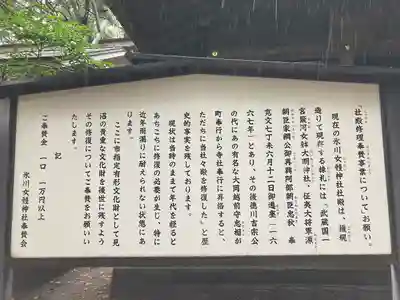 「社殿修理奉賛事業について」お願い。
現在の氷川女體神社社殿は、擁覗
造りで現存する棟札には「武蔵国一
宮簸河女躰大明神社、征夷大将軍源
朝臣家綱公御再興阿部朝臣忠秋 奉
寛文七丁未六月十二日御遷座(一六
六七年)とあり、その後徳川吉宗公
の代にあの有名な大岡越前守忠相が
町奉行から寺社奉行に昇格すると、
ただちに「当社々殿を修復した」と歴
史的事実を残しております。
現状は当時のままで年代を経ると
あちこちに修復の必要が生じ、特に
近年雨漏りに耐えられない状態にあ
ります。
ここに市指定有形文化財として見
沼の貴重な文化財を後世に残すよう
その修復についてご奉賛をお願いい
たします。
記
ご奉賛金 一口 一万円以上
氷川女體神社奉賛会